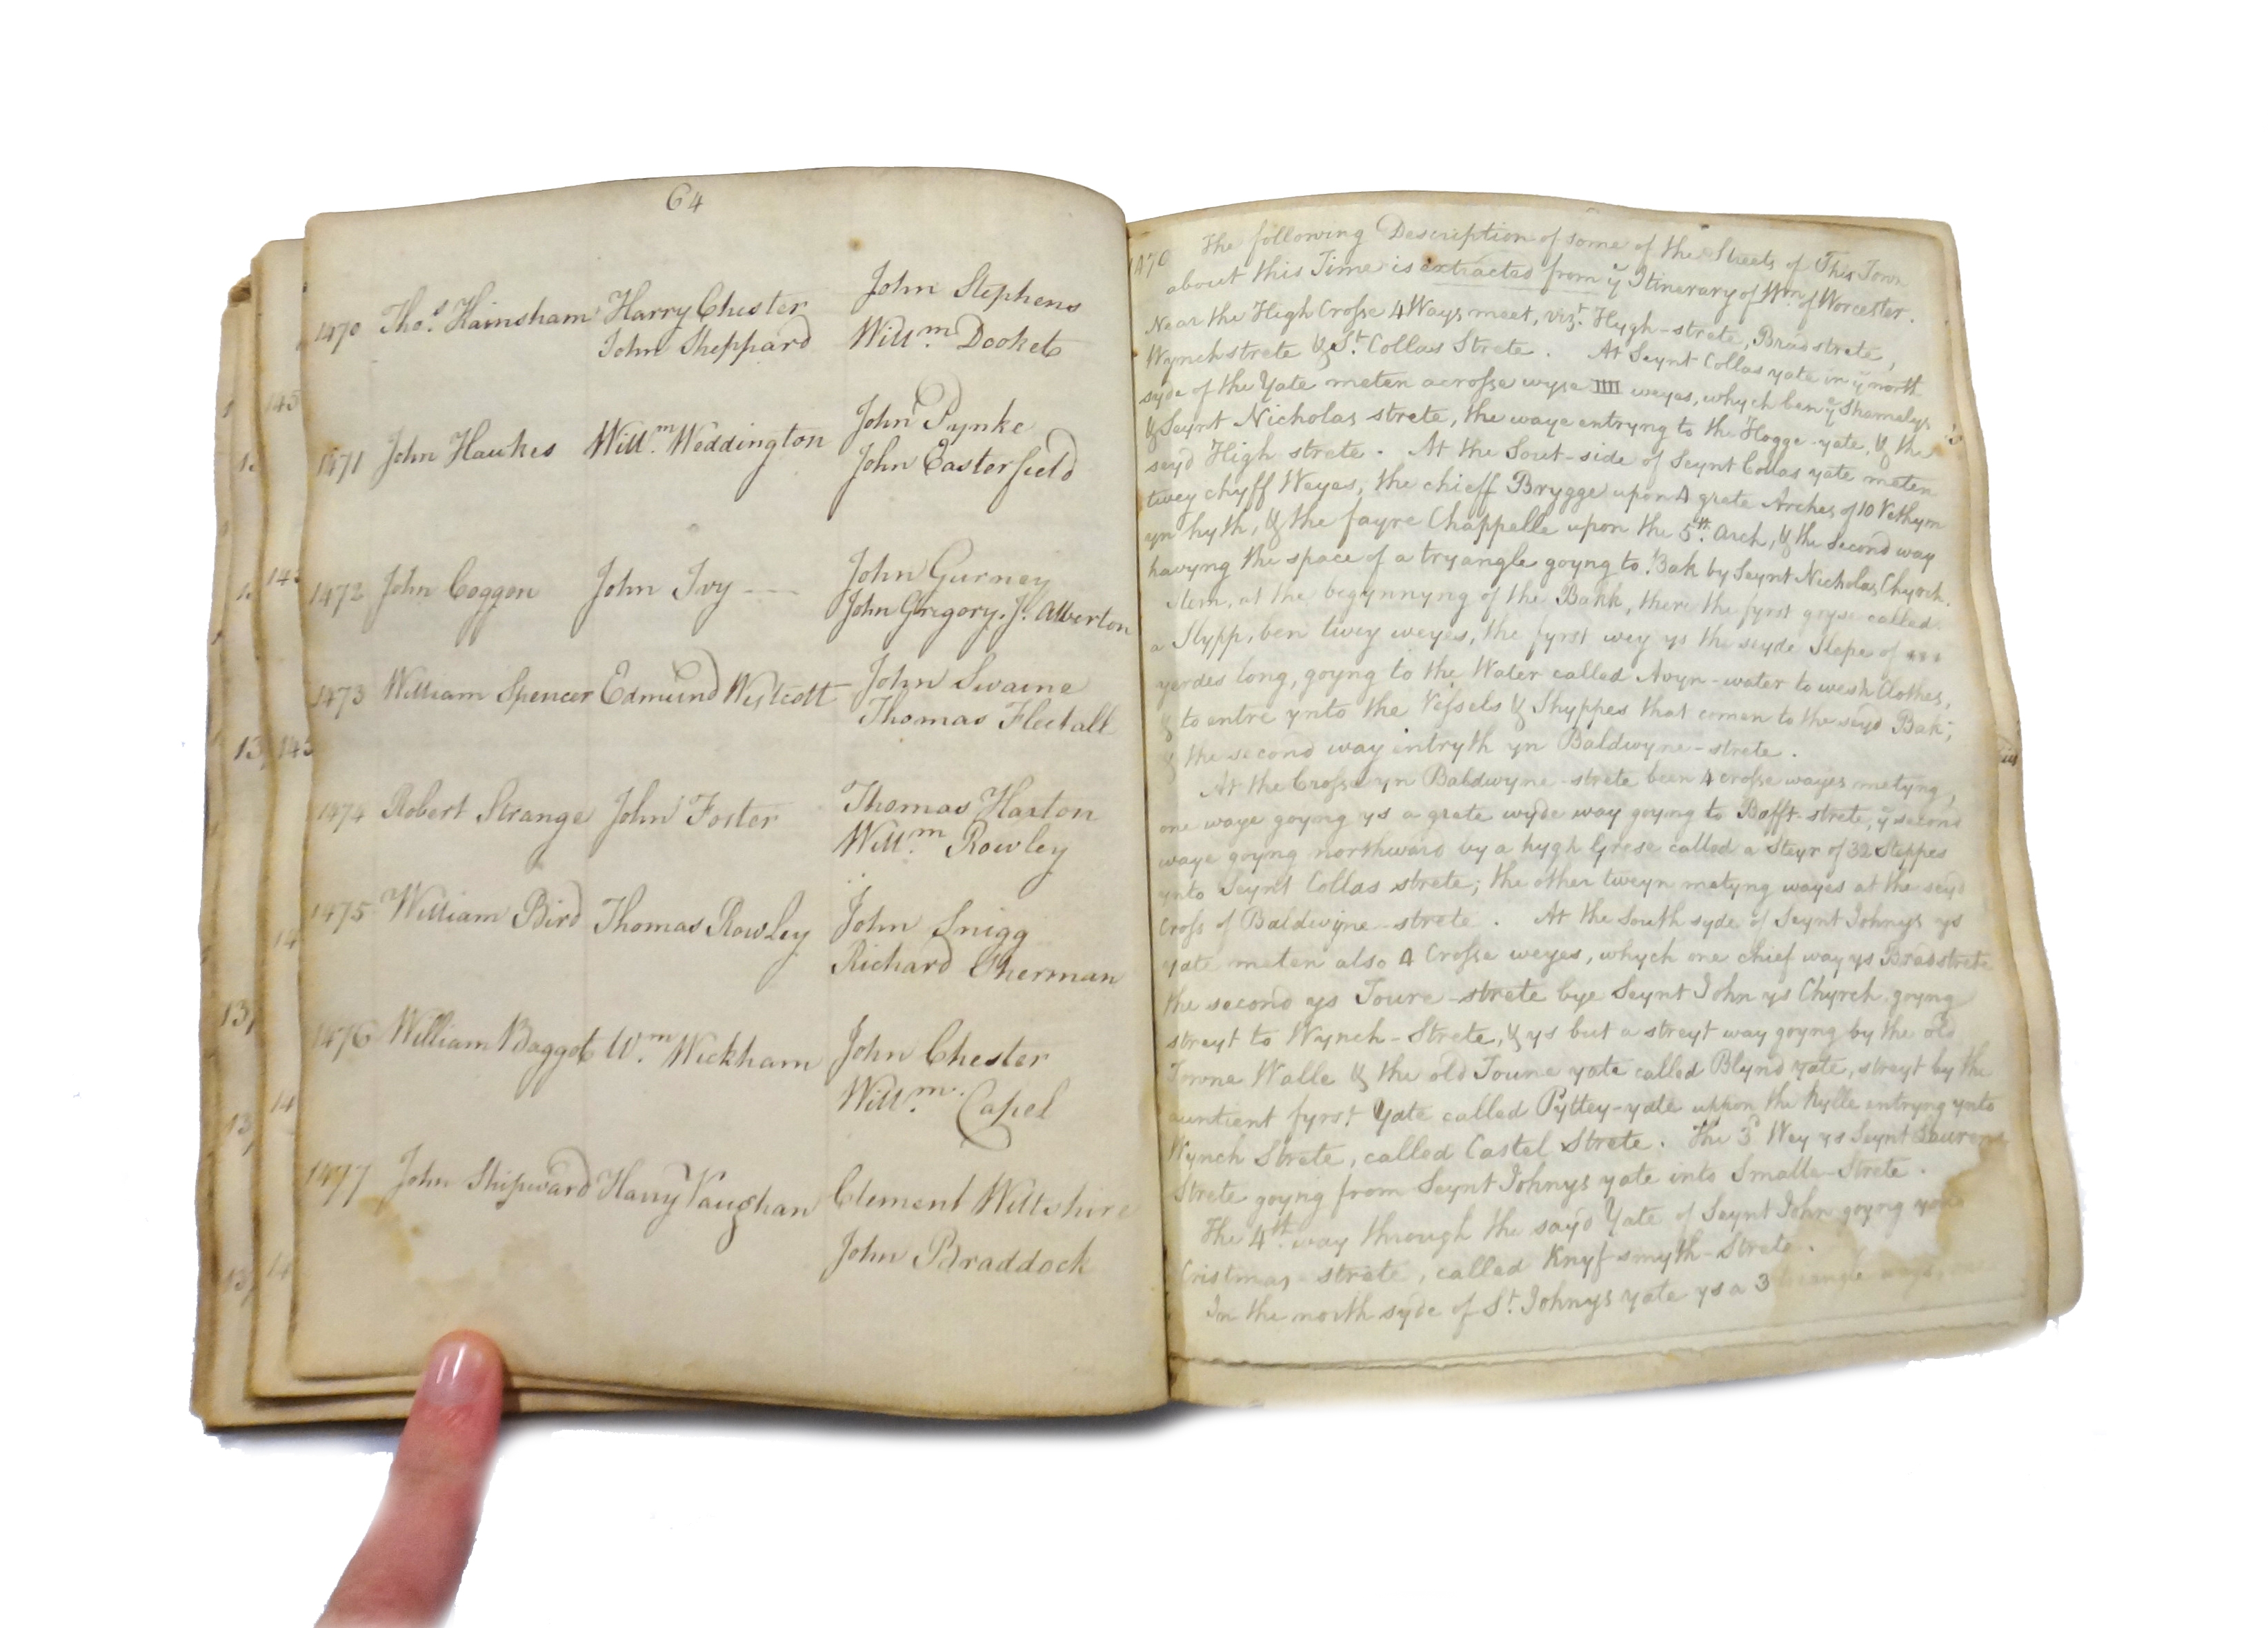 64
1470 Tho.s Hainsham Harry Chester John Stephens
John Sheppard Will.m Dooket
1471 John Hawkes Will.m Weddington John Pynke
John Easterfield
1472 John Coggon John Ivy John Gurney
John Gregory. J. Alberton
1473 William Spencer Edmund Westcott John Swaine
Thomas Fleetall
1474 Robert Strange John Foster Thomas Haxton
Will.m Rowley
1475 William Bird Thomas Rowley John Snigg
Richard Sherman
1476 William Baggot W.m Wickham John Chester
Will.m Capel
1477 John Shipward Harry Vaughan Clement Wiltshire
John Braddock
1470 The following Description of some of the Streets of This Town
about this Time is extracted from ÿ Itinerary of Wm. of Worcester.
Near the High Crosse 4 Ways meet, viz.t Hygh-strete, Bradstrete,
Wynchstrete & St. Collas Strete. At Seynt Collas yate in ÿ north
syde of the Yate meten acrosse wyse IIII weyes, whych ben ÿ Shamelys
& Seynt Nicholas strete, the waye entryng to the Hogge-yate, & the
seyd High strete. At the Sout-side of Seynt Collas yate meten
twey chyff Weyes, the chieff Brygge upon 4 grete Arches of 10 Vethym
yn hyth, & the fayre Chappelle upon the 5th. Arch, & the Second way
havyng the space of a tryangle goyng to Bak by Seynt Nicholas Chyrch.
Item, at the begynnyng of the Bakk, there the fyrst gryse called
a Slypp, ben twey weyes, the fyrst wey ys the seyde Slepe of ***
yerdes long, goyng to the Water called Avyn-water to wesh Clothes,
& to entre ynto the Vessels & Shyppes that comen to the seyd Bak;
& the second way entryth yn Baldwyne-strete.
At the Crosse yn Baldwyne-strete been 4 crosse wayes metyng,
one waye goyng ys a grete wyde way goyng to Bafft-strete, ÿ second
waye goyng northward by a hygh Grese called a Steyr of 32 Steppes
ynto Seynt Collas strete; the other tweyn metyng wayes at the seyd
Cross of Baldwyne-strete. At the South syde of Seynt Johnys ys
yate meten also 4 Crosse weyes, whych one chief way ys Bradstrete
the second ys Toure-strete bye Seynt John ys Chyrch goyng
streyt to Wynch-Strete, & ys but a streyt way goyng by the old
Towne Walle & the old Toune yate called Blynd yate, streyt by the
auntient fyrst Yate called Pyttey-yate uppon the hylle entryng ynto
Wynch Strete, called Castel Strete. The 3d Wey ys Seynt Laurens
Strete goyng from Seynt Johnys yate into Smalle-Strete.
The 4th way through the sayd Yate of Seynt John goyng ynto
Cristmas-strete, called Knyf-smyth-Strete.
In the north syde of St. Johnys yate ys a 3 triangle ways